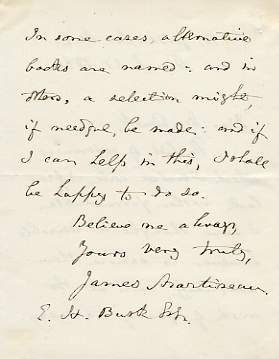 In some cases, alternative
books are named: and in
others, a selection might,
if needful, be made: and if
I can help in this, I shall
be happy to do so.
Believe me always,
Yours very truly,
James Martineau.
E. H. Busk Esq.